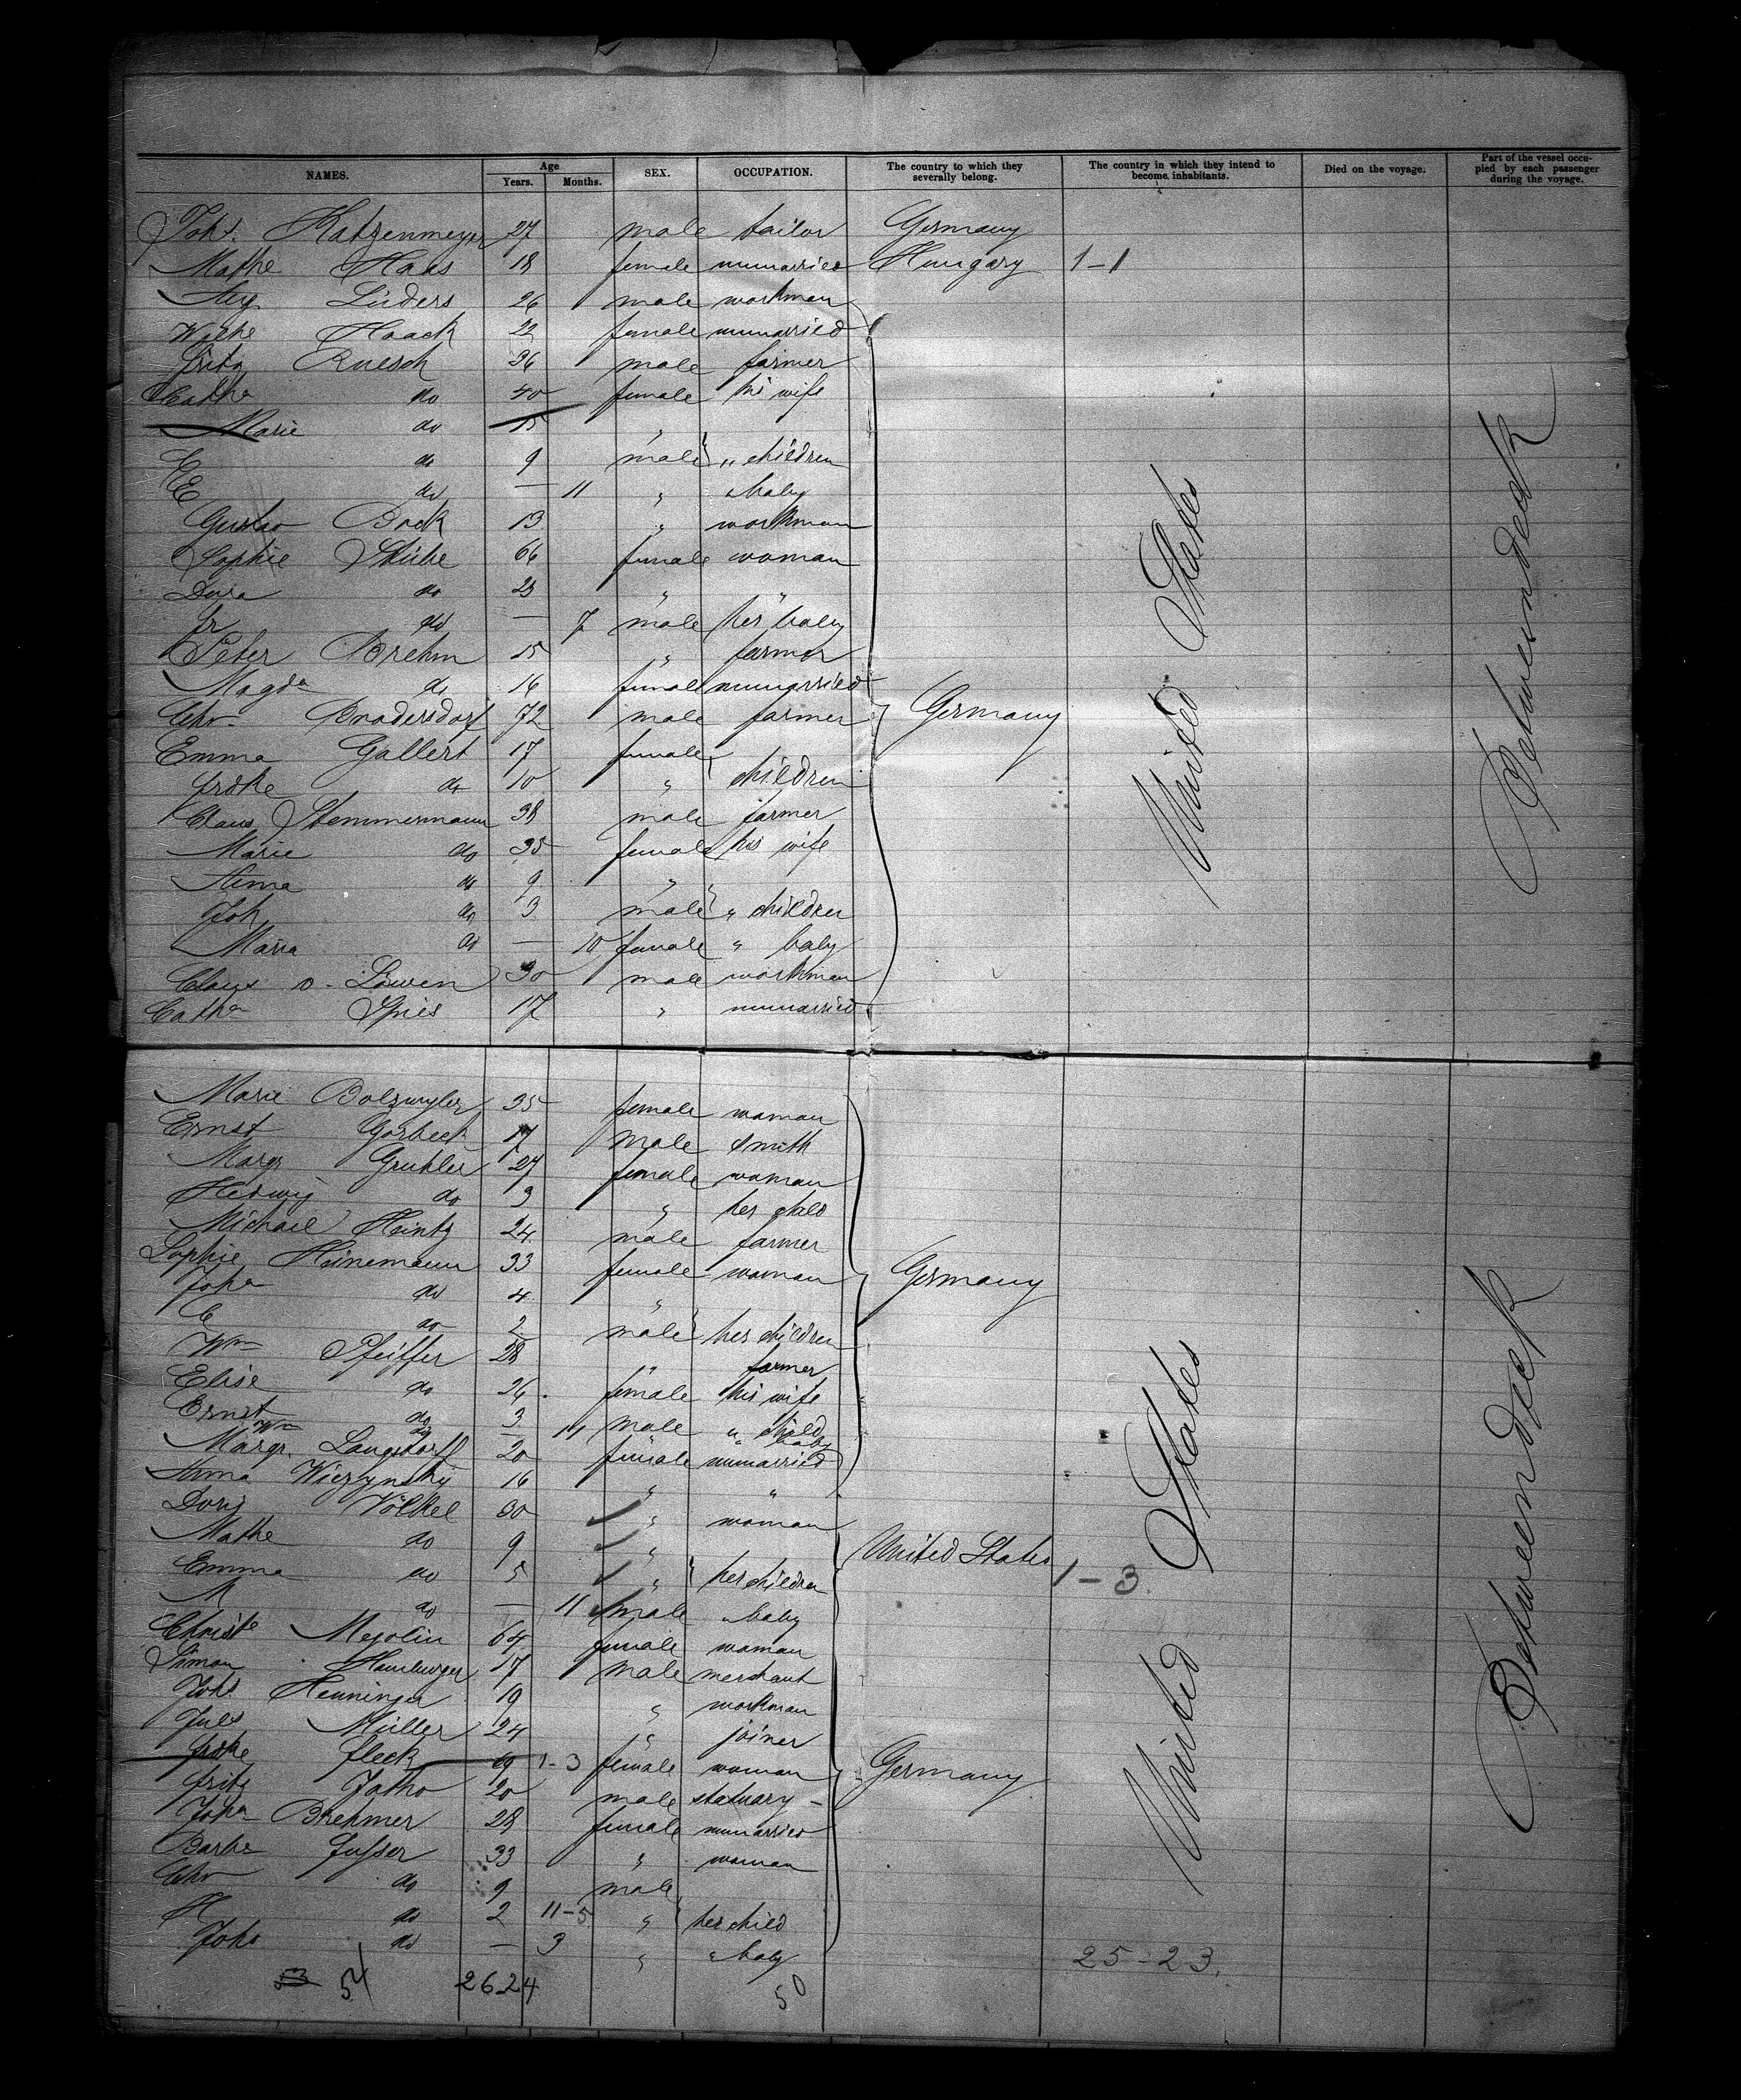 NAMES. Age Years. Months. SEX. OCCUPATION. The country to which they severally belong. The country in which they intend to become inhabitants. Died on the voyage. Part of the vessel occupied by each passenger during the voyage.
Johs. Katzenmeyer 27 male tailor Germany
Mathe Haas 18 female unmarried Hungary 1-1
Aug Lüders 26 male workman
Wilhe Haack 22 female unmarried
Fritz Ruesch 36 male farmer
Cathe do 40 female his wife
Marie do 15 "
E do 9 male " children
E do — 11 " " baby
Gustav Bock 13 " workman
Sophie Stühe 66 female woman
Dora do 23 " "
Fr do — 7 male her baby
Peter Brehm 15 " farmer
Magda do 16 female unmarried
Chr. Brodersdorf 72 male farmer Germany
Emma Gallert 17 female
Frdke do 10 " children
Claus Stemmermann 38 male farmer
Marie do 35 female his wife
Anna do 9 "
Joh. do 3 male " children
Maria do — 10 female " baby
Claus v. Lawen 30 male workman
Catha Spies 17 " unmarried
United States
Between deck
Marie Bolzwyler 35 female woman
Ernst Garbeck 17 male smith
Margr Gruhler 27 female woman
Hedwig do 3 " her child
Michael Heintz 24 male farmer
Sophie Heinemann 33 female woman Germany
Joha do 4 "
C do 2 male her children
Wm Pfeiffer 28 " farmer
Elise do 26 female his wife
Ernst do 3 male " child
Wm do — 11 " baby
Margr. Langsdorff 20 female unmarried
Anna Wiczynsky 16 " "
Doris Völkel 30 " woman
Mathe do 9 " United States
Emma do 5 " her children 1-3
M do — 11 male " baby
Christe Megolin 64 female woman
Simon Hamburger 17 male merchant
Johs. Henninger 19 " workman
Juls Müller 24 " joiner
Frdke Fleck 1-3 female woman Germany
Fritz Jatho 20 male statuary
Joha Brehmer 28 female unmarried
Barba Fusser 33 " woman
Chr do 9 male
H do 2 11-5 " her child
Johs do — 3 " " baby
United States
Between deck
54 26 24 50 25-23.